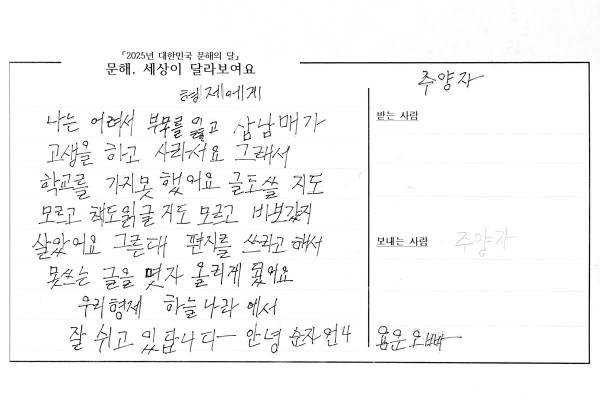 「2025년 대한민국 문해의 달」
문해, 세상이 달라보여요
형제에게
나는 어려서 부모를 잃고 삼남매가
고생을 하고 사라서요 그래서
학교를 가지못 했어요 글도쓸 지도
모르고 책도읽글 지도 모르고 바보같지
살았어요 그른대 편지를 쓰라고 해서
못쓰는 글을 몇자 올리게 됐어요
우리형제 하늘나라 에서
잘 쉬고 있답니다 안녕 순자언니
용운오빠
주양자
받는 사람
보내는 사람 주양자